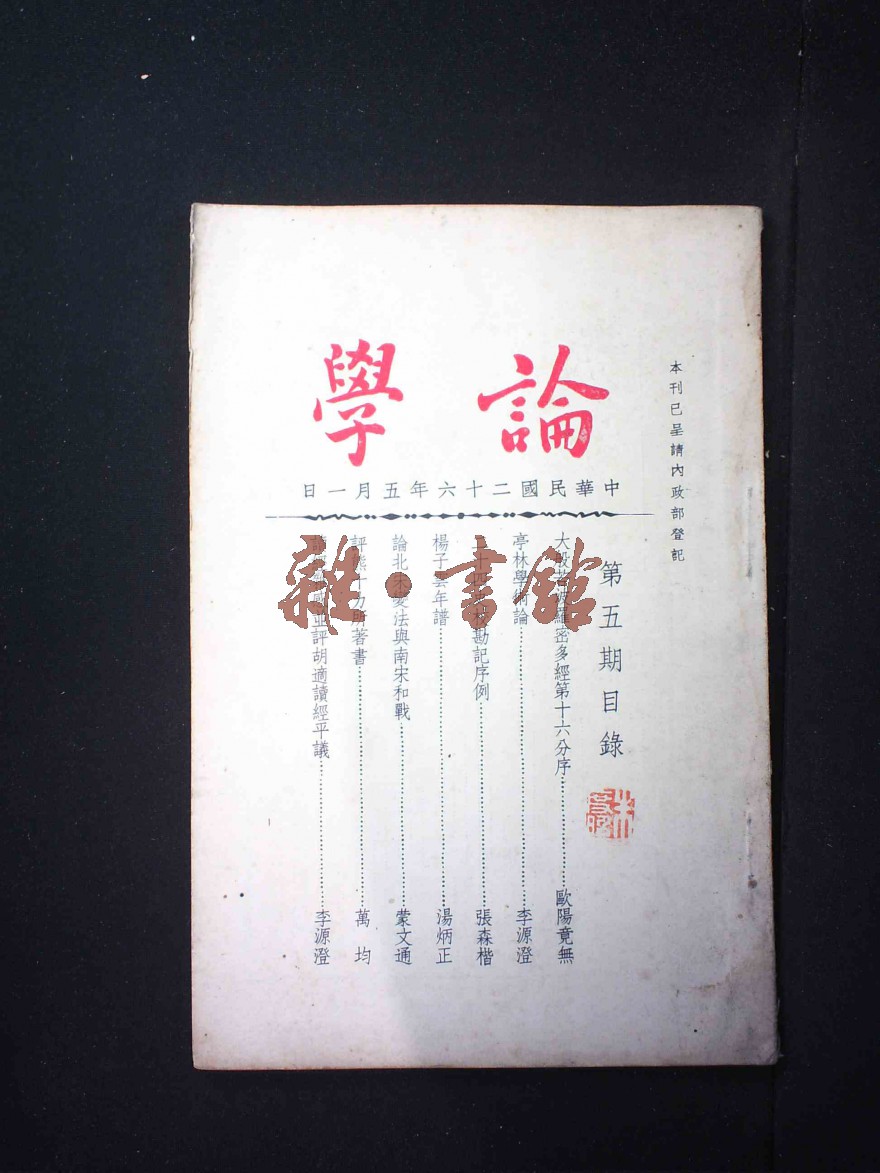 本刊已呈請內政部登記
論學
中華民國二十六年五月一日
第五期目錄
大般若波羅密多經第十六分序 歐陽竟無
亭林學術論 李源澄
二十四史校勘記序例 張森楷
楊子雲年譜 湯炳正
論北宋變法與南宋和戰 蒙文通
評熊十力所著書 萬均
並評胡適讀經平議 李源澄
雜·書館